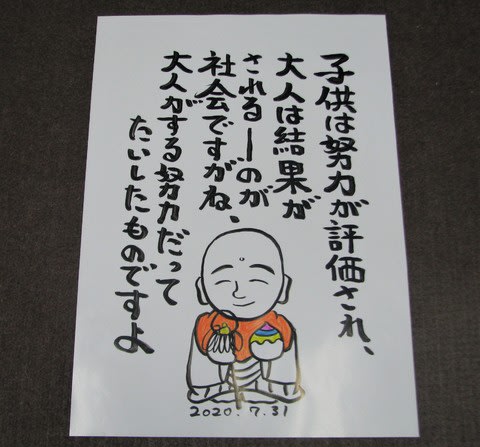 子供は努力が評価され、
大人は結果が
されるーのが
社会ですがね、
大人がする努力だって
たいしたものですよ
2020.7.31